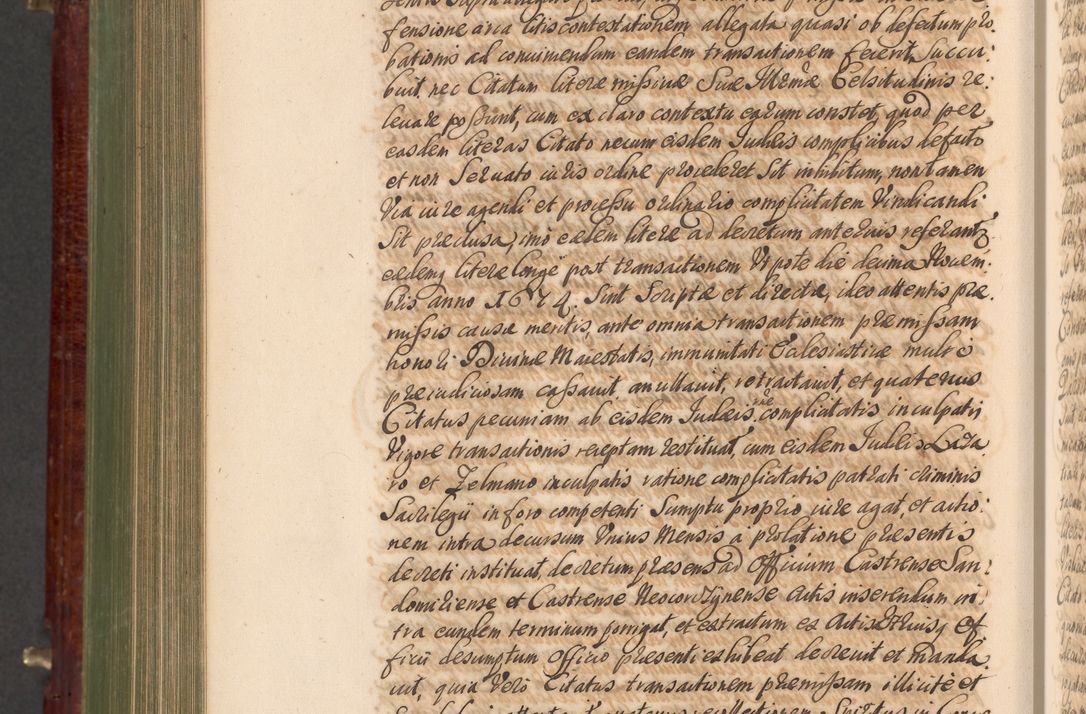 fensione circa litis contestationem allegata quasi ob defectum pro
bationis ad convincendum eandem transactionem fecerit, succu:
buit, nec Citatum literæ missivæ Suæ Illmæ Celsitudinis re:
levare possunt, cum ex claro contextu earum constet, quod per
easdem literas Citato ne cum eisdem Judæis complicibus de facto
et non servato iuris ordine procederet sit inhibitum, non tamen
via iure agendi et processu ordinario complicitatem vindicandi
sit preclusa, imo eædem literæ ad decretum anterius referant
eædemq literæ longe post transactionem utpote die decima Novem:
bris anno 1674. sint scriptæ et directæ, ideo attentis præ:
missis causæ meritis, ante omnia transactionem præmissam
honori Divinæ Maiestatis, immunitati Ecclesiasticæ
præiudiciosam cassavit, anullavit, retractavit, et quatenus
Citatus pecuniam ab eisdem Judæis, rne complicitatis inculpatis
vigore transactionis receptam restituat, cum eisdem Judæis Laza
ro et Zelmano inculpatis ratione complicitatis patrati criminis
Sacrilegii in foro competenti sumptu proprio iure agat, et actio:
nem intra decursum unius Mensis a prolatione præsentis
decreti instituat, decretum præsens ad Officium Castrense San:
domiriense et Castrense Neocorczynense Actis inserendum in:
tra eundem terminum porrigat, et extractum ex Actis utriusq Of
ficii desumptum Officio præsenti exhibeat decrevit et manda
vit, quia vero Citatus transactionem præmissam illicite et